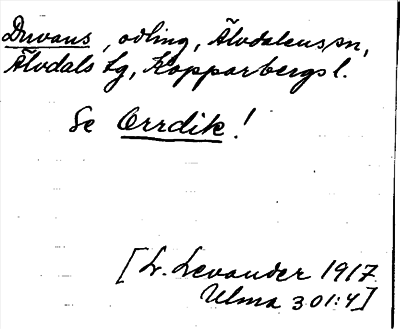 Duvans, odling, Älvdalens sn,
Älvdals tg, Kopparbergs l.
Se Orrdik!
[L. Levander 1917
Ulma 301:4]